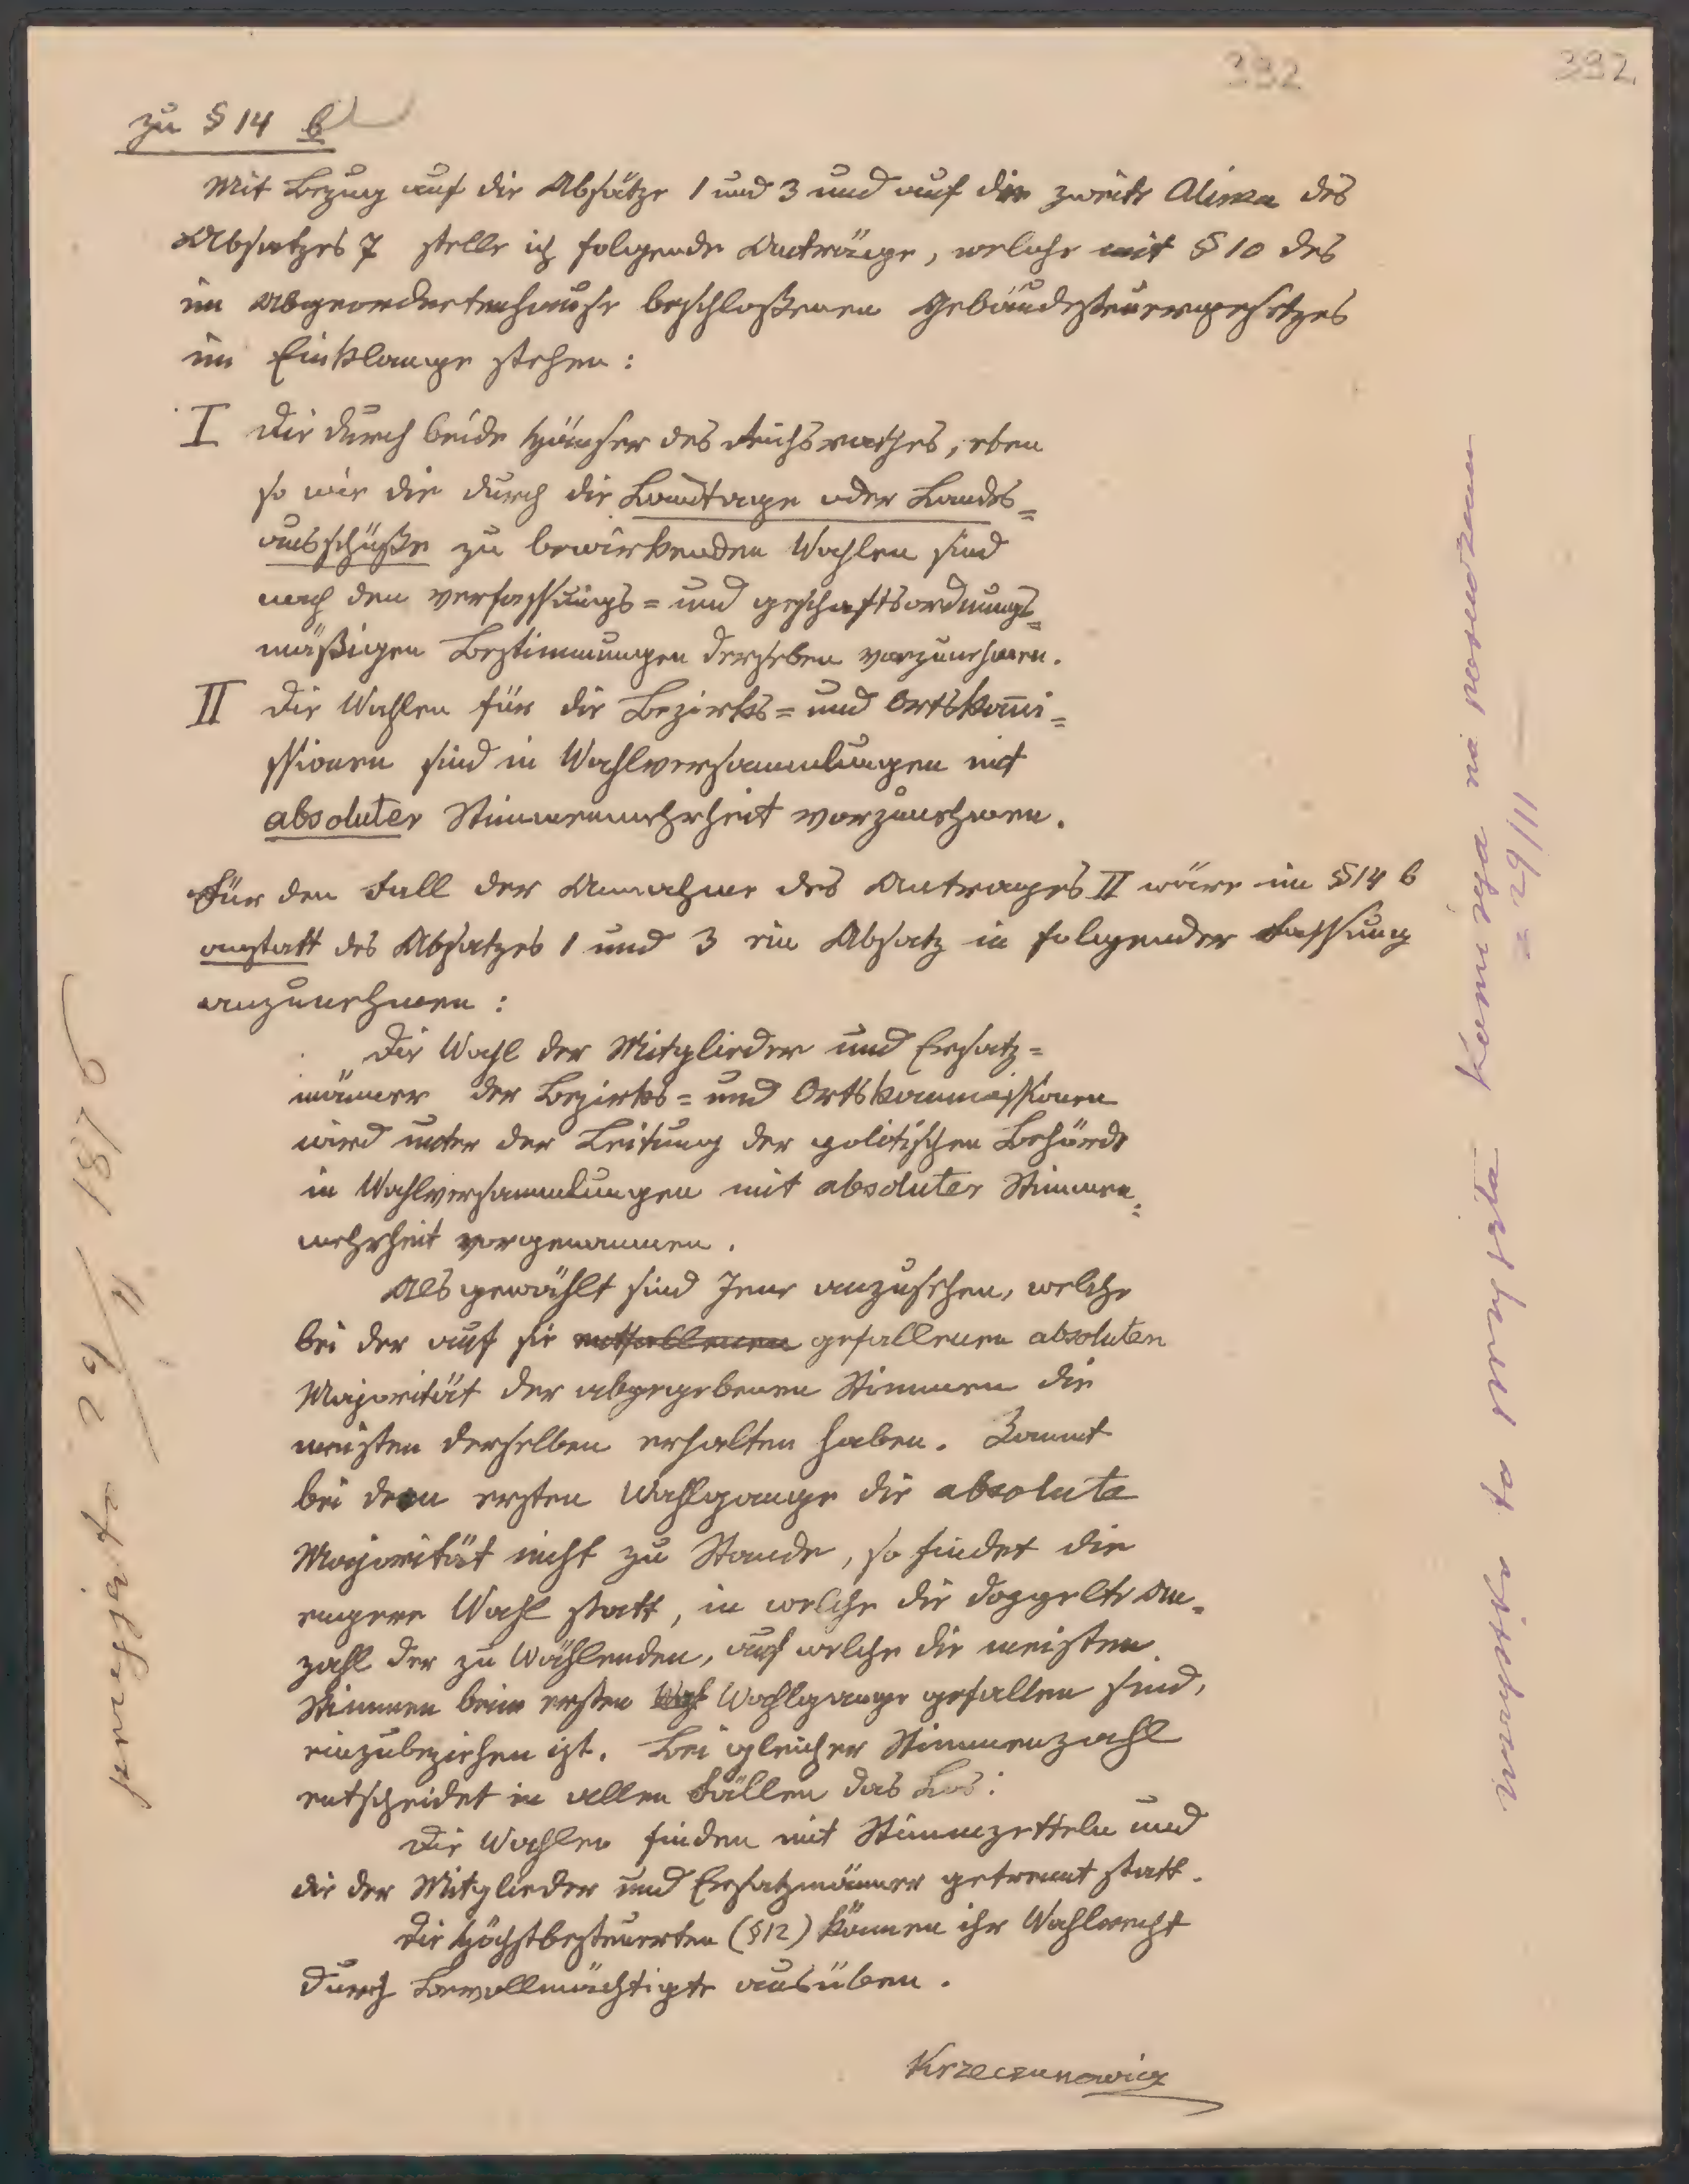 392
392.
zu § 14 b
Mit Bezug auf die Absätze 1 und 3 und auf die zweite Alinea des
Absatzes 7 stelle ich folgende Anträge, welche mit § 10 des
im Abgeordnetenhause beschloßenen Gebäudesteuergesetzes
im Einklange stehen:
I Die durch beide Häuser des Reichsrathes, eben
so wie die durch die Landtage oder Landes=
ausschüße zu bewirkenden Wahlen sind
nach den verfassungs= und geschäftsordnungs=
mäßigen Bestimmungen derselben vorzunehmen.
II Die Wahlen für die Bezirks= und Ortskom̄i=
ssionen sind in Wahlversammlungen mit
absoluter Stimmenmehrheit vorzunehmen.
Für den Fall der Annahme des Antrages II wäre im § 14 b
anstatt des Absatzes 1 und 3 ein Absatz in folgender Fassung
anzunehmen:
Die Wahl der Mitglieder und Ersatz=
männer der Bezirks= und Ortskommissionen
wird unter der Leitung der politischen Behörde
in Wahlversammlungen mit absoluter Stimmen=
mehrheit vorgenommen.
Als gewählt sind Jene anzusehen, welche
bei der auf sie entfallenen gefallenen absoluten
Majorität der abgegebenen Stimmen die
meisten derselben erhalten haben. Kommt
bei dem ersten Wahlgange die absolute
Majorität nicht zu Stande, so findet die
engere Wahl statt, in welche die doppelte An=
zahl der zu Wählenden, auf welche die meisten
Stimmen beim ersten Wahl Wahlgange gefallen sind,
einzubeziehen ist. Bei gleicher Stimmenzahl
entscheidet in allen Fällen das Los.
Die Wahlen finden mit Stimmzetteln und
die der Mitglieder und Ersatzmänner getrennt statt.
Die Höchstbesteuerten (§ 12) können ihr Wahlrecht
durch Bevollmächtigte ausüben.
Krzeczunowicz
przyjęto 29/11 1875
wszystko to przyjęła komisya na posiedzeniu
29/11